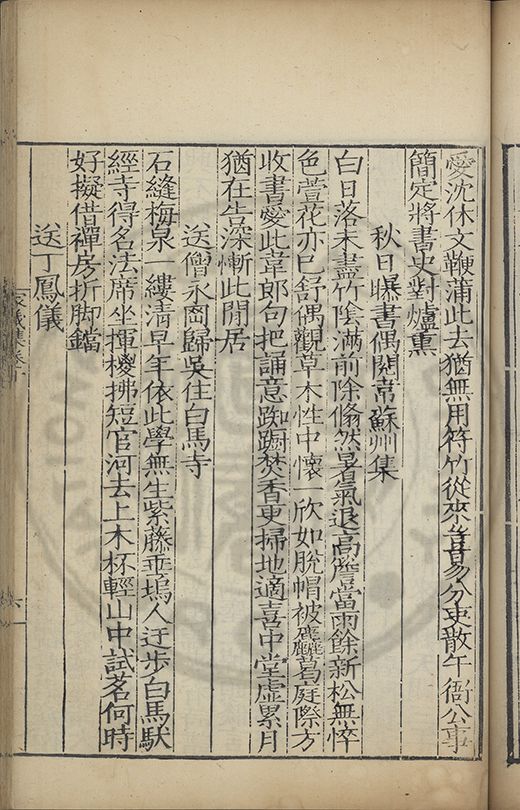 愛沈休文鞭蒲此去猶無用符竹從來豈易分吏散午衙公事
簡定將書史對爐熏
秋日曝書偶閱韋蘇州集
白日落未盡竹陰滿前除翛然暑氣退高簷當雨餘新松無悴
色萱花亦已舒偶觀草木性中懷一欣如脫帽被麤葛庭際方
收書愛此韋郎句把誦意踟躕焚香更掃地適喜中堂虛累月
猶在告深慚此閒居
送僧永岡歸吳住白馬寺
石縫梅泉一縷清早年依此學無生紫藤垂塢人迂步白馬馱
經寺得名法席坐揮椶拂短官河去上木杯輕山中試茗何時
好擬借禪房折脚鐺
送丁鳳儀